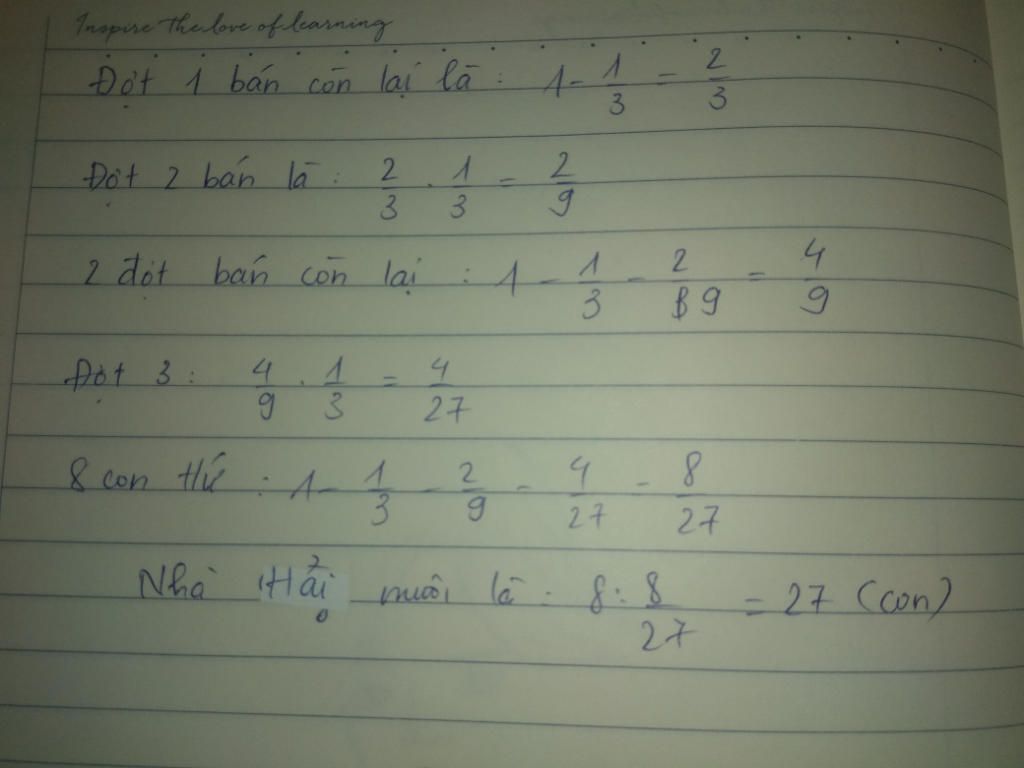 Inspire the love of learning
Đợt 1 bán còn lại là : 1 - 1/3 = 2/3
Đợt 2 bán là : 2/3 . 1/3 = 2/9
2 đợt bán còn lại : 1 - 1/3 - 2/9 = 4/9
Đợt 3 : 4/9 . 1/3 = 4/27
8 con thứ : 1 - 1/3 - 2/9 - 4/27 = 8/27
Nhà Hải nuôi là : 8 : 8/27 = 27 (con)